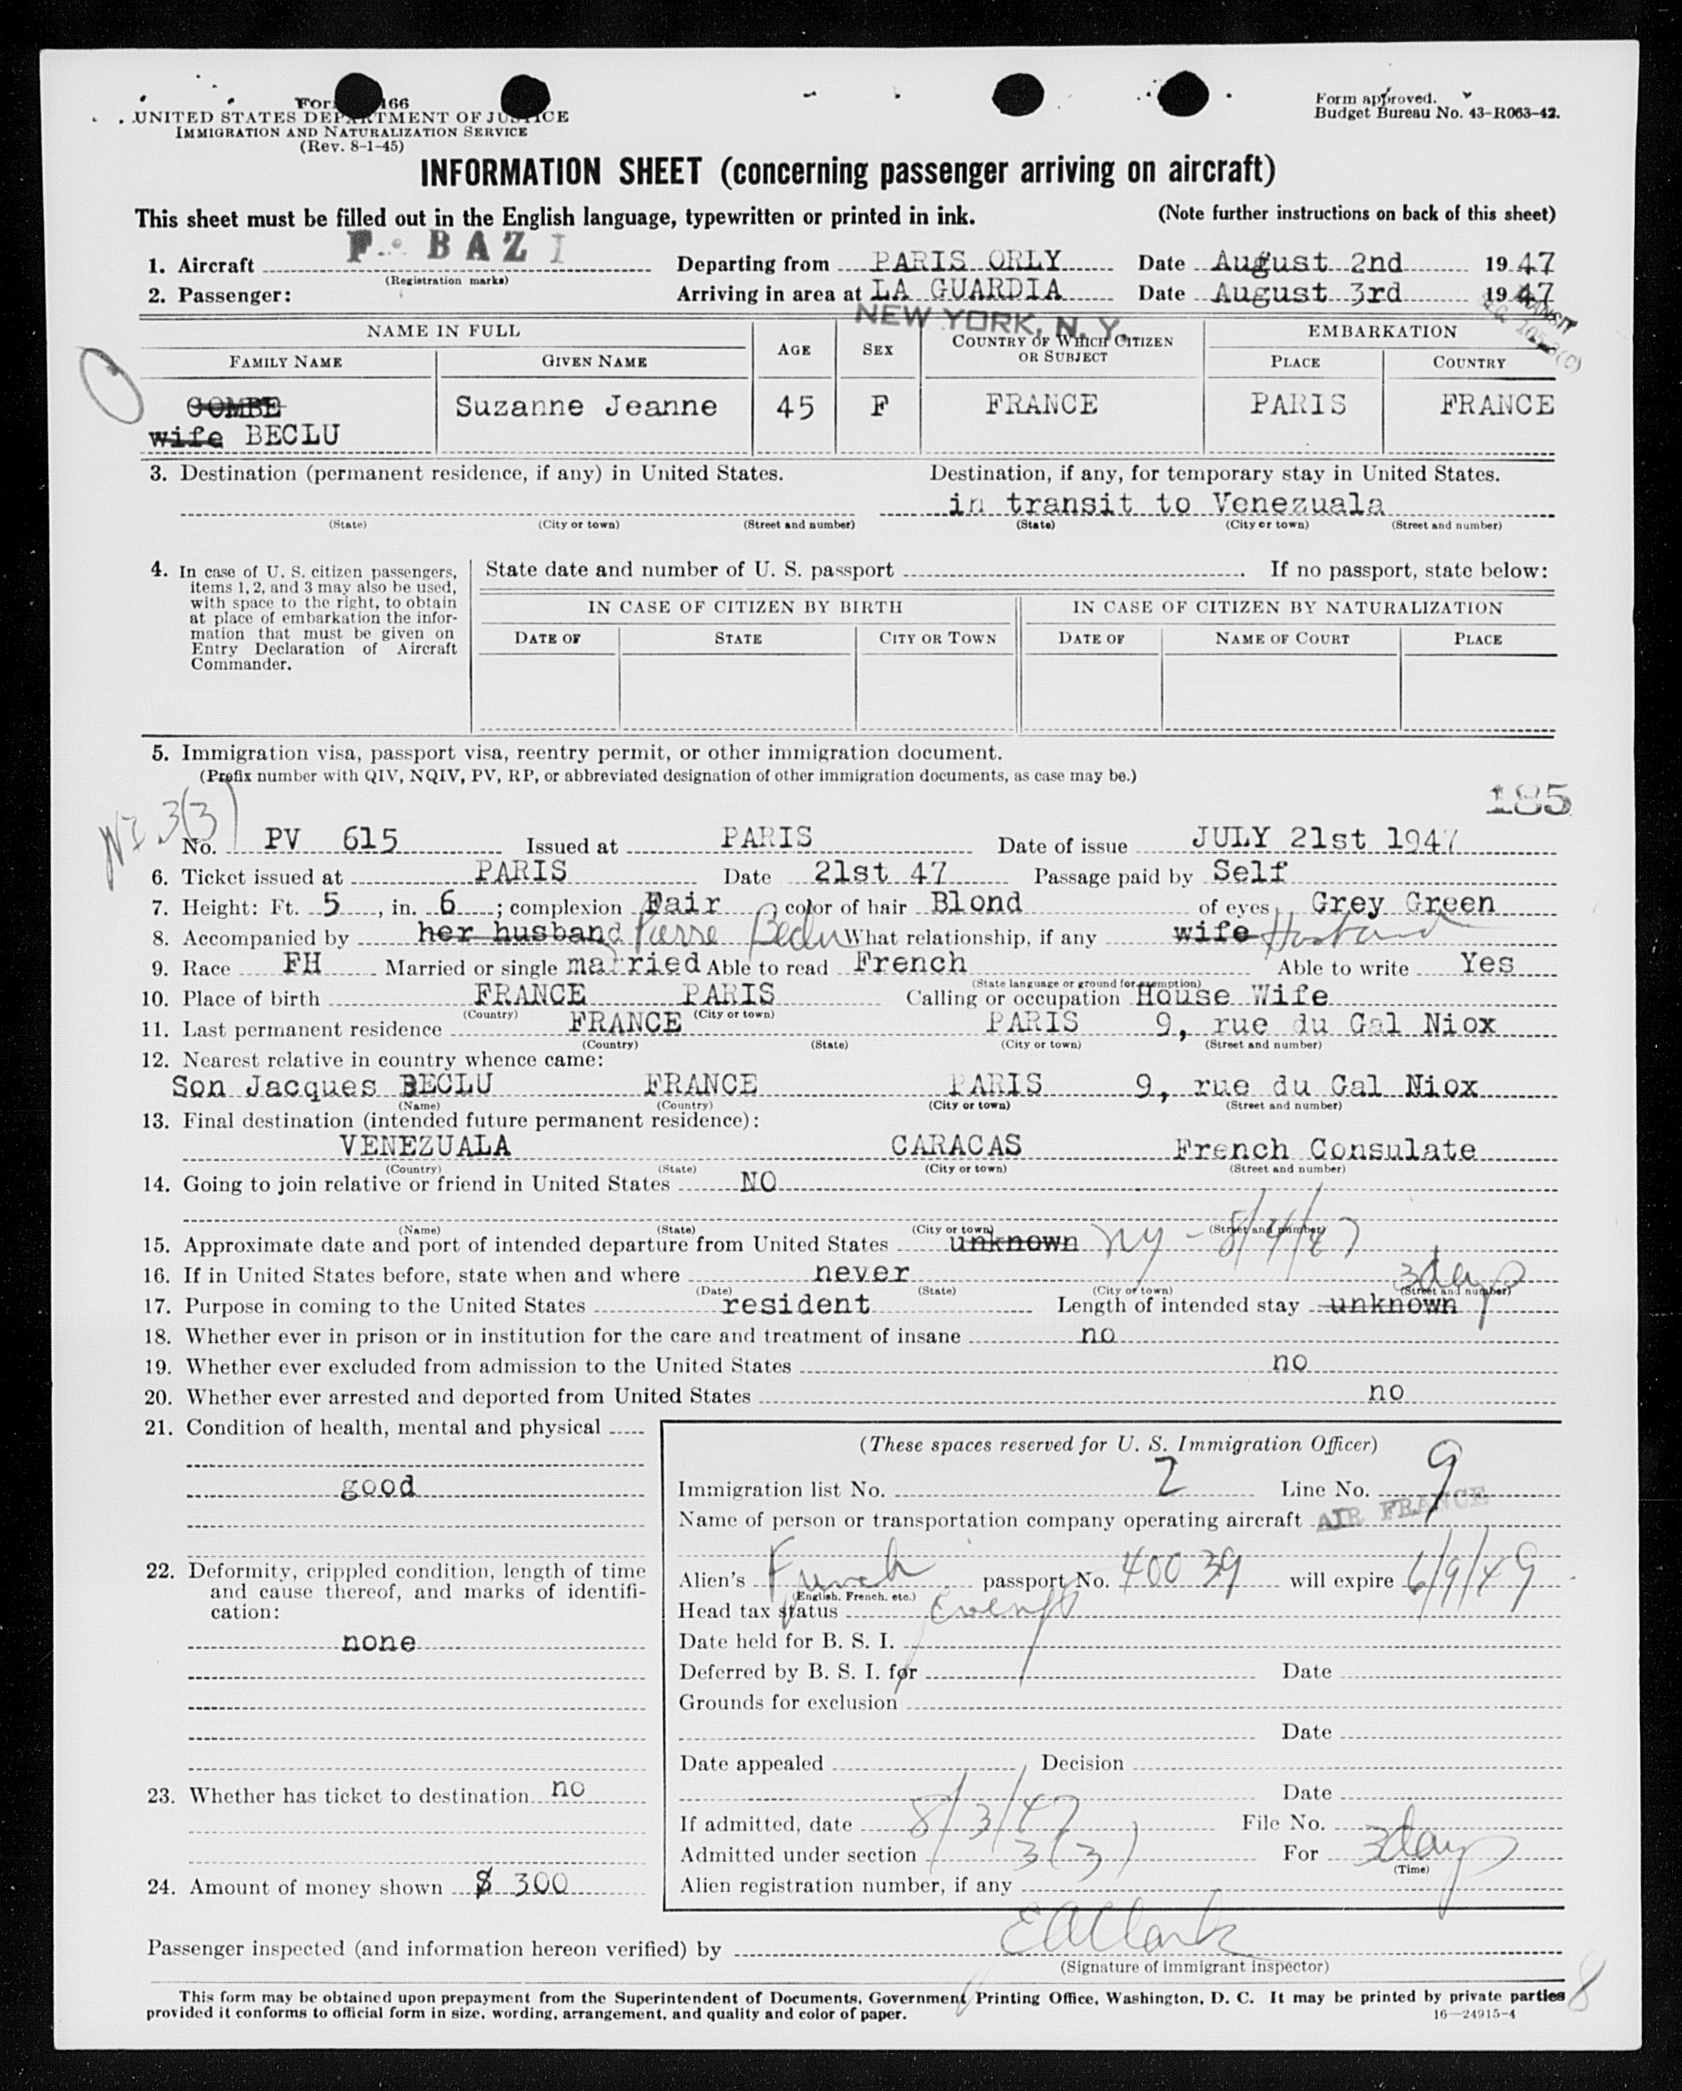 Form 166
UNITED STATES DEPARTMENT OF JUSTICE
IMMIGRATION AND NATURALIZATION SERVICE
(Rev. 8-1-45)
Form approved.
Budget Bureau No. 43-R063-42.
INFORMATION SHEET (concerning passenger arriving on aircraft)
This sheet must be filled out in the English language, typewritten or printed in ink. (Note further instructions on back of this sheet)
1. Aircraft F. BAZI Departing from PARIS ORLY Date August 2nd 1947
(Registration marks)
2. Passenger: Arriving in area at LA GUARDIA Date August 3rd 1947
NEW YORK, N. Y.
TRANSIT
NAME IN FULL AGE SEX COUNTRY OF WHICH CITIZEN OR SUBJECT EMBARKATION
FAMILY NAME GIVEN NAME PLACE COUNTRY
COMBE
wife BECLU Suzanne Jeanne 45 F FRANCE PARIS FRANCE
3. Destination (permanent residence, if any) in United States. Destination, if any, for temporary stay in United States.
in transit to Venezuala
(State) (City or town) (Street and number) (State) (City or town) (Street and number)
4. In case of U. S. citizen passengers, items 1, 2, and 3 may also be used, with space to the right, to obtain at place of embarkation the information that must be given on Entry Declaration of Aircraft Commander.
State date and number of U. S. passport . If no passport, state below:
IN CASE OF CITIZEN BY BIRTH IN CASE OF CITIZEN BY NATURALIZATION
DATE OF STATE CITY OR TOWN DATE OF NAME OF COURT PLACE
5. Immigration visa, passport visa, reentry permit, or other immigration document.
(Prefix number with QIV, NQIV, PV, RP, or abbreviated designation of other immigration documents, as case may be.)
185
NI 3(3)
No. PV 615 Issued at PARIS Date of issue JULY 21st 1947
6. Ticket issued at PARIS Date 21st 47 Passage paid by Self
7. Height: Ft. 5, in. 6; complexion Fair color of hair Blond of eyes Grey Green
8. Accompanied by her husband Pierre Beclu What relationship, if any wife Husband
9. Race FH Married or single married Able to read French Able to write Yes
(State language or ground for exemption)
10. Place of birth FRANCE PARIS Calling or occupation House Wife
(Country) (City or town)
11. Last permanent residence FRANCE PARIS 9, rue du Gal Niox
(Country) (State) (City or town) (Street and number)
12. Nearest relative in country whence came:
Son Jacques BECLU FRANCE PARIS 9, rue du Gal Niox
(Name) (Country) (City or town) (Street and number)
13. Final destination (intended future permanent residence):
VENEZUALA CARACAS French Consulate
(Country) (State) (City or town) (Street and number)
14. Going to join relative or friend in United States NO
(Name) (State) (City or town) (Street and number)
15. Approximate date and port of intended departure from United States unknown NY - 8/4/47
16. If in United States before, state when and where never
(Date) (State) (City or town) (Street and number)
17. Purpose in coming to the United States resident Length of intended stay unknown 3 days
18. Whether ever in prison or in institution for the care and treatment of insane no
19. Whether ever excluded from admission to the United States no
20. Whether ever arrested and deported from United States no
21. Condition of health, mental and physical
good
22. Deformity, crippled condition, length of time and cause thereof, and marks of identification:
none
23. Whether has ticket to destination no
24. Amount of money shown $ 300
(These spaces reserved for U. S. Immigration Officer)
Immigration list No. 2 Line No. 9
Name of person or transportation company operating aircraft AIR FRANCE
Alien's French passport No. 40039 will expire 6/9/49
(English, French, etc.)
Head tax status Exempt
Date held for B. S. I.
Deferred by B. S. I. for Date
Grounds for exclusion
Date
Date appealed Decision
Date
If admitted, date 8/3/47 File No.
Admitted under section 3(3) For 3 days
(Time)
Alien registration number, if any
Passenger inspected (and information hereon verified) by EA Clark
(Signature of immigrant inspector)
8
This form may be obtained upon prepayment from the Superintendent of Documents, Government Printing Office, Washington, D. C. It may be printed by private parties
provided it conforms to official form in size, wording, arrangement, and quality and color of paper. 16—24915-4